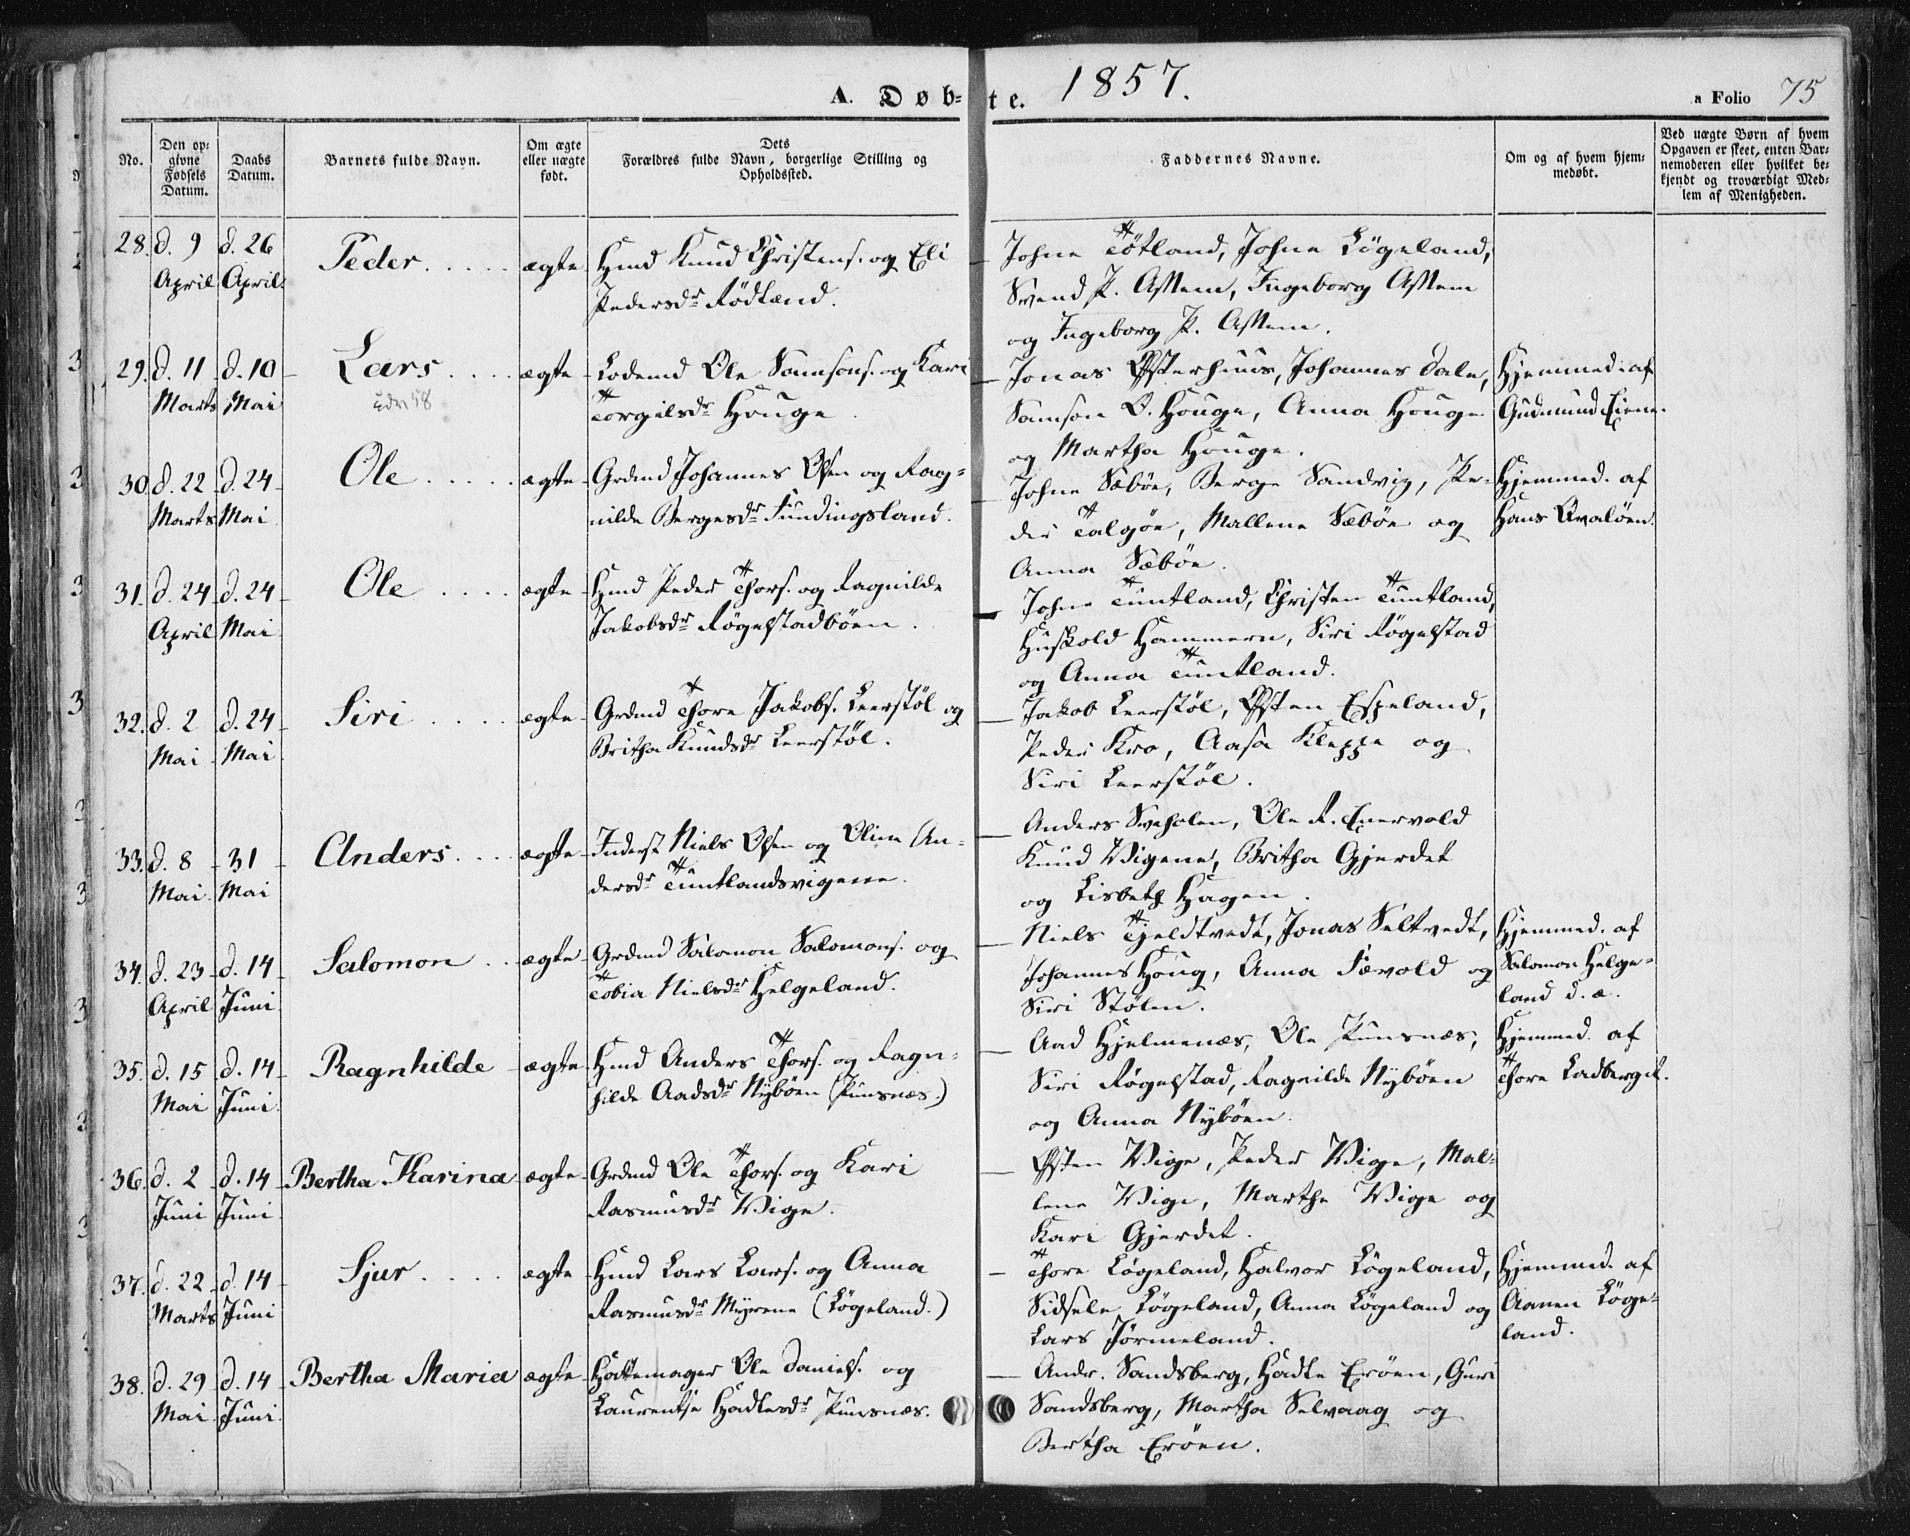 A. Døb-
te. 1857.
a Folio 75
No.
Den op-
givne
Fødsels
Datum.
Daabs
Datum.
Barnets fulde Navn.
Om ægte
eller uægte
født.
Dets
Forældres fulde Navn, borgerlige Stilling og
Opholdssted.
Faddernes Navne.
Om og af hvem hjem-
medøbt.
Ved uægte Børn af hvem
Opgaven er skeet, enten Bar-
nemoderen eller hvilket be-
kjendt og troværdigt Med-
lem af Menigheden.
28. d. 9 April d. 26 April Peder. . . . . ægte
Hmd Knud Christens. og Eli
Pedersdr Rödland.
Johne Tötland, Johne Lögeland,
Svend P. Østern, Ingeborg
og Ingeborg P.
29. d. 11 Marts d. 10 Mai Lars . . . . ægte
Lodsmd Ole Samsons. og Kari
Torgilsdr Houge.
Jonas Østerhuus, Johannes Dale,
Samson O. Houge, Anna Houge
og Martha Houge.
Hjemmed. af
Gudmund Eiene.
30. d. 22 Marts d. 24 Mai Ole . . . . . ægte
Grdmd Johannes Ols. og Rag-
nilde Bergesdr Fundingsland.
Johne Sæböe, Berge Sandvig, Pe-
der Talgöe, Mallene Sæböe og
Anna Sæböe.
Hjemmed. af
Hans Qvalöen.
31. d. 24 April d. 24 Mai Ole . . . . ægte
Hmd Peder Thors. og Ragnilde
Jakobsdr Rögelstadböen.
Johne Tuntland, Christen Tuntland,
Huskold Hammeren, Siri Rögelstad
og Anna Tuntland.
32. d. 2 Mai d. 24 Mai Siri . . . . ægte
Grdmd Thore Jakobs. Leerstöl og
Britha Knudsdr Leerstöl.
Jakob Leerstöl, Østen Espeland,
Peder Kro, Aasa Kleppe og
Siri Leerstöl.
33. d. 8 Mai 31 Mai Anders. . . ægte
Inderst Niels Ols. og Oline An-
dersdr Tuntlandsvigene.
Anders Sveholen, Ole R. Enervold
Knud Vigene, Britha Gjerdet
og Lisbeth Hagen.
34. d. 23 April d. 14 Juni Salomon . . ægte
Grdmd Salomon Salomons. og
Tobia Nielsdr Helgeland.
Niels Tjeldtvedt, Jonas Seltvedt,
Johannes Houg, Anna Fævold og
Siri Stölen.
Hjemmed. af
Salomon Helge-
land d. æ.
35. d. 15 Mai d. 14 Juni Ragnhilde ægte
Hmd Anders Thors. og Ragn-
hilde Aadsdr Nyböen (Punsnæs.)
Aad Hjelmenæs, Ole Punsnæs,
Siri Rögelstad, Ragnilde Nyböen
og Anna Nyböen.
Hjemmed. af
Thore Ladberget.
36. d. 2 Juni d. 14 Juni Bertha Karina ægte
Grdmd Ole Thors. og Kari
Rasmusdr Vige.
Østen Vige, Peder Vige, Mal-
lene Vige, Marthe Vige og
Kari Gjerdet.
37. d. 22 Marts d. 14 Juni Sjur . . . . ægte
Hmd Lars Lars. og Anna
Rasmusdr Myrene (Lögeland.)
Thore Lögeland, Halvor Lögeland,
Sidsele Lögeland, Anna Lögeland og
Lars Jörmeland.
Hjemmed. af
Aanen Löge-
land.
38. d. 29 Mai d. 14 Juni Bertha Maria ægte
Hattemager Ole Daniels. og
Laurentse Hadlesdr Punsnæs.
Andr. Sandsberg, Hadle Eröen, Guri
Sandsberg, Martha Selvaag og
Bertha Eröen.